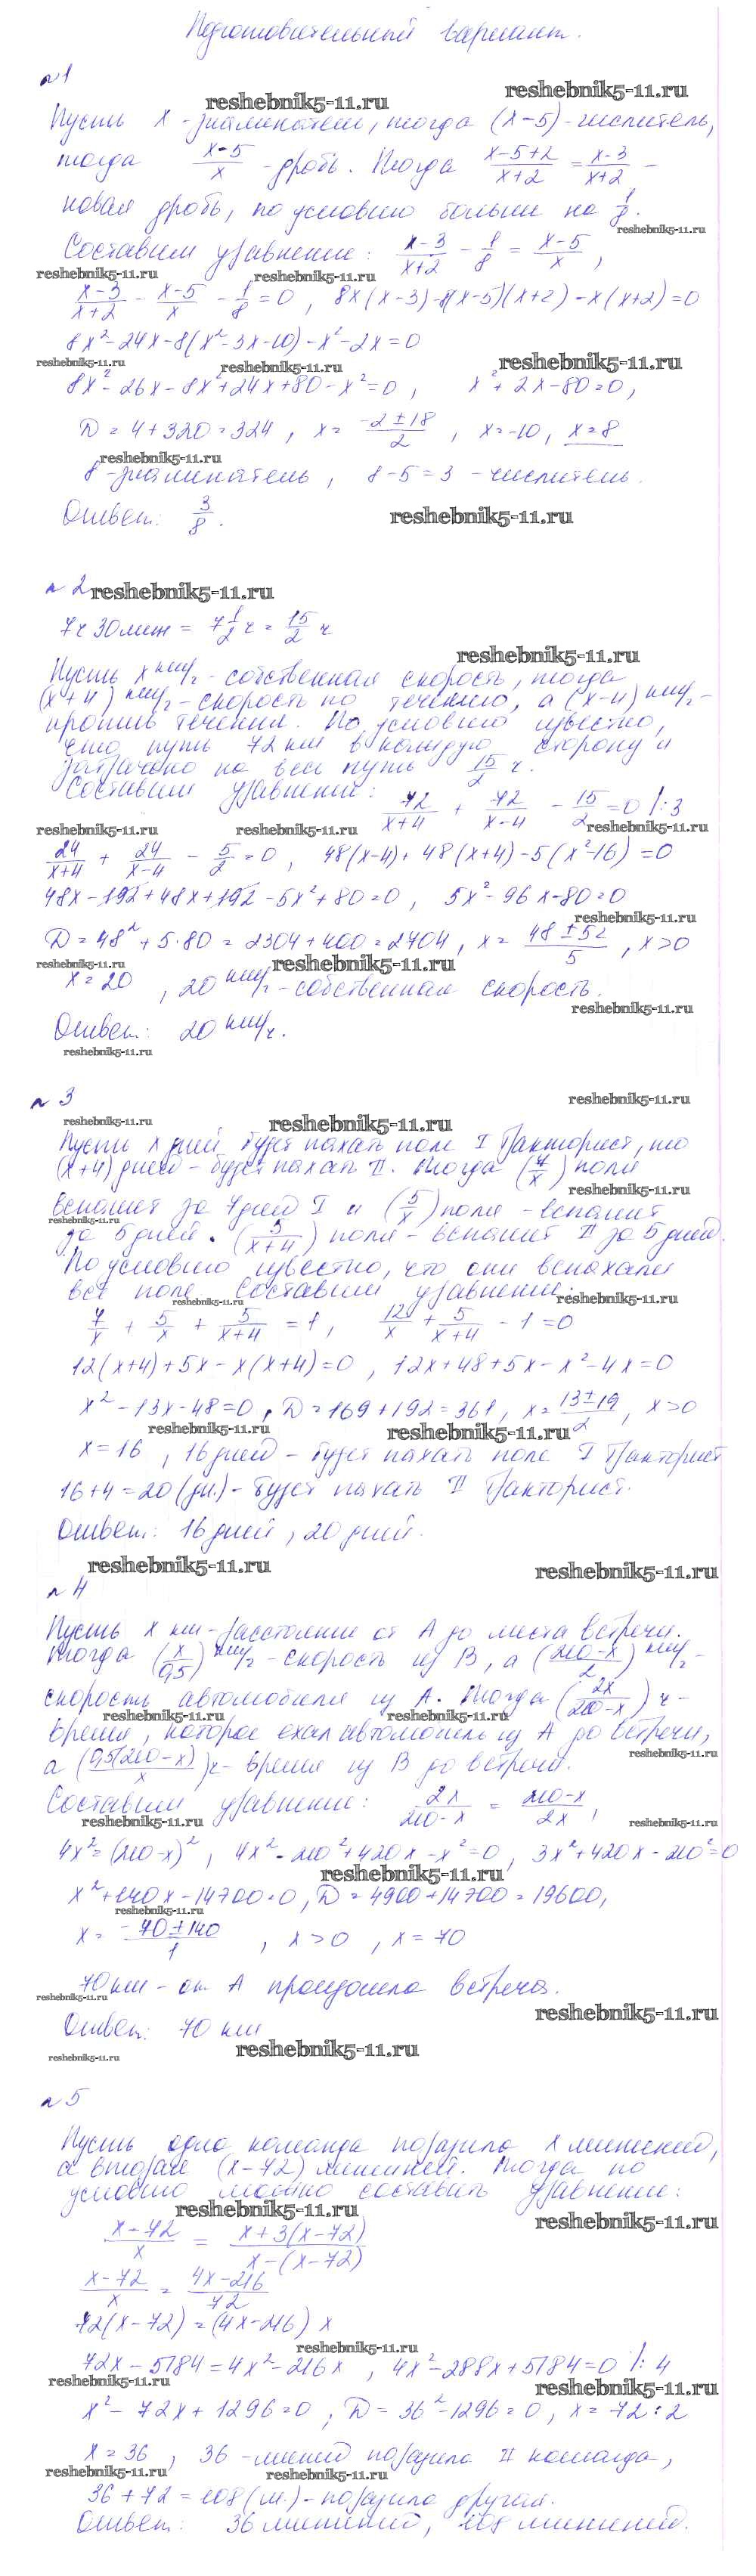 Подготовительный вариант.
№1
reshebnik5-11.ru reshebnik5-11.ru
Пусть x - знаменатель, тогда (x-5) - числитель,
тогда (x-5)/x - дробь. Тогда (x-5+2)/(x+2) = (x-3)/(x+2) -
новая дробь, по условию больше на 1/8.
reshebnik5-11.ru
Составим уравнение: (x-3)/(x+2) - 1/8 = (x-5)/x,
reshebnik5-11.ru reshebnik5-11.ru
(x-3)/(x+2) - (x-5)/x - 1/8 = 0, 8x(x-3)-8(x-5)(x+2)-x(x+2)=0
8x²-24x-8(x²-3x-10)-x²-2x=0
reshebnik5-11.ru reshebnik5-11.ru reshebnik5-11.ru
8x²-26x-8x²+24x+80-x²=0, x²+2x-80=0,
D=4+320=324, x=(-2±18)/2, x=-10, x=8
reshebnik5-11.ru
8-знаменатель, 8-5=3 - числитель.
Ответ: 3/8.
reshebnik5-11.ru
№2
reshebnik5-11.ru
7ч 30мин = 7 1/2 ч = 15/2 ч
reshebnik5-11.ru
Пусть x км/ч - собственная скорость, тогда
(x+4) км/ч - скорость по течению, а (x-4) км/ч -
против течения. По условию известно,
что путь 72 км в каждую сторону и
затрачено на весь путь 15/2 ч.
Составим уравнение: 72/(x+4) + 72/(x-4) - 15/2 = 0 |:3
reshebnik5-11.ru reshebnik5-11.ru reshebnik5-11.ru
24/(x+4) + 24/(x-4) - 5/2 = 0, 48(x-4)+48(x+4)-5(x²-16)=0
48x-192+48x+192-5x²+80=0, 5x²-96x-80=0
reshebnik5-11.ru
D=48²+5·80=2304+400=2704, x=(48±52)/5, x>0
reshebnik5-11.ru reshebnik5-11.ru
x=20, 20 км/ч - собственная скорость.
reshebnik5-11.ru
Ответ: 20 км/ч.
reshebnik5-11.ru
№3
reshebnik5-11.ru
reshebnik5-11.ru reshebnik5-11.ru
Пусть x дней будет пахать поле I тракторист, то
(x+4) дней - будет пахать II. Тогда (7/x) поля
reshebnik5-11.ru
вспашет за 7 дней I и (5/x) поля - вспашет
reshebnik5-11.ru
за 5 дней. (5/(x+4)) поля - вспашет II за 5 дней.
По условию известно, что они вспахали
все поле. Составим уравнение:
reshebnik5-11.ru reshebnik5-11.ru
7/x + 5/x + 5/(x+4) = 1, 12/x + 5/(x+4) - 1 = 0
12(x+4)+5x-x(x+4)=0, 12x+48+5x-x²-4x=0
x²-13x-48=0, D=169+192=361, x=(13±19)/2, x>0
reshebnik5-11.ru reshebnik5-11.ru
x=16, 16 дней - будет пахать поле I тракторист
16+4=20 (дн.) - будет пахать II тракторист.
Ответ: 16 дней, 20 дней.
reshebnik5-11.ru reshebnik5-11.ru
№4
Пусть x км - расстояние от A до места встречи.
Тогда (x/0,5) км/ч - скорость из B, а ((210-x)/2) км/ч -
скорость автомобиля из A. Тогда (2x/(210-x)) ч -
reshebnik5-11.ru reshebnik5-11.ru
время, которое ехал автомобиль из A до встречи,
reshebnik5-11.ru
а (0,5(210-x)/x) ч - время из B до встречи.
Составим уравнение: 2x/(210-x) = (210-x)/2x,
reshebnik5-11.ru reshebnik5-11.ru
4x²=(210-x)², 4x²-210²+420x-x²=0, 3x²+420x-210²=0
reshebnik5-11.ru
x²+140x-14700=0, D=4900+14700=19600,
reshebnik5-11.ru
x=(-70±140)/1, x>0, x=70
70 км - от A произошла встреча.
reshebnik5-11.ru reshebnik5-11.ru
Ответ: 70 км
reshebnik5-11.ru reshebnik5-11.ru
№5
Пусть одна команда поразила x мишеней,
а вторая (x-72) мишеней. Тогда по
условию можно составить уравнение:
reshebnik5-11.ru reshebnik5-11.ru
(x-72)/x = (x+3(x-72))/(x-(x-72))
(x-72)/x = (4x-216)/72
72(x-72)=(4x-216)x
reshebnik5-11.ru
72x-5184=4x²-216x, 4x²-288x+5184=0 |:4
reshebnik5-11.ru reshebnik5-11.ru
x²-72x+1296=0, D=36²-1296=0, x=72:2
x=36, 36-мишеней поразила II команда,
reshebnik5-11.ru reshebnik5-11.ru
36+72=108 (м.) - поразила другая.
Ответ: 36 мишеней, 108 мишеней.